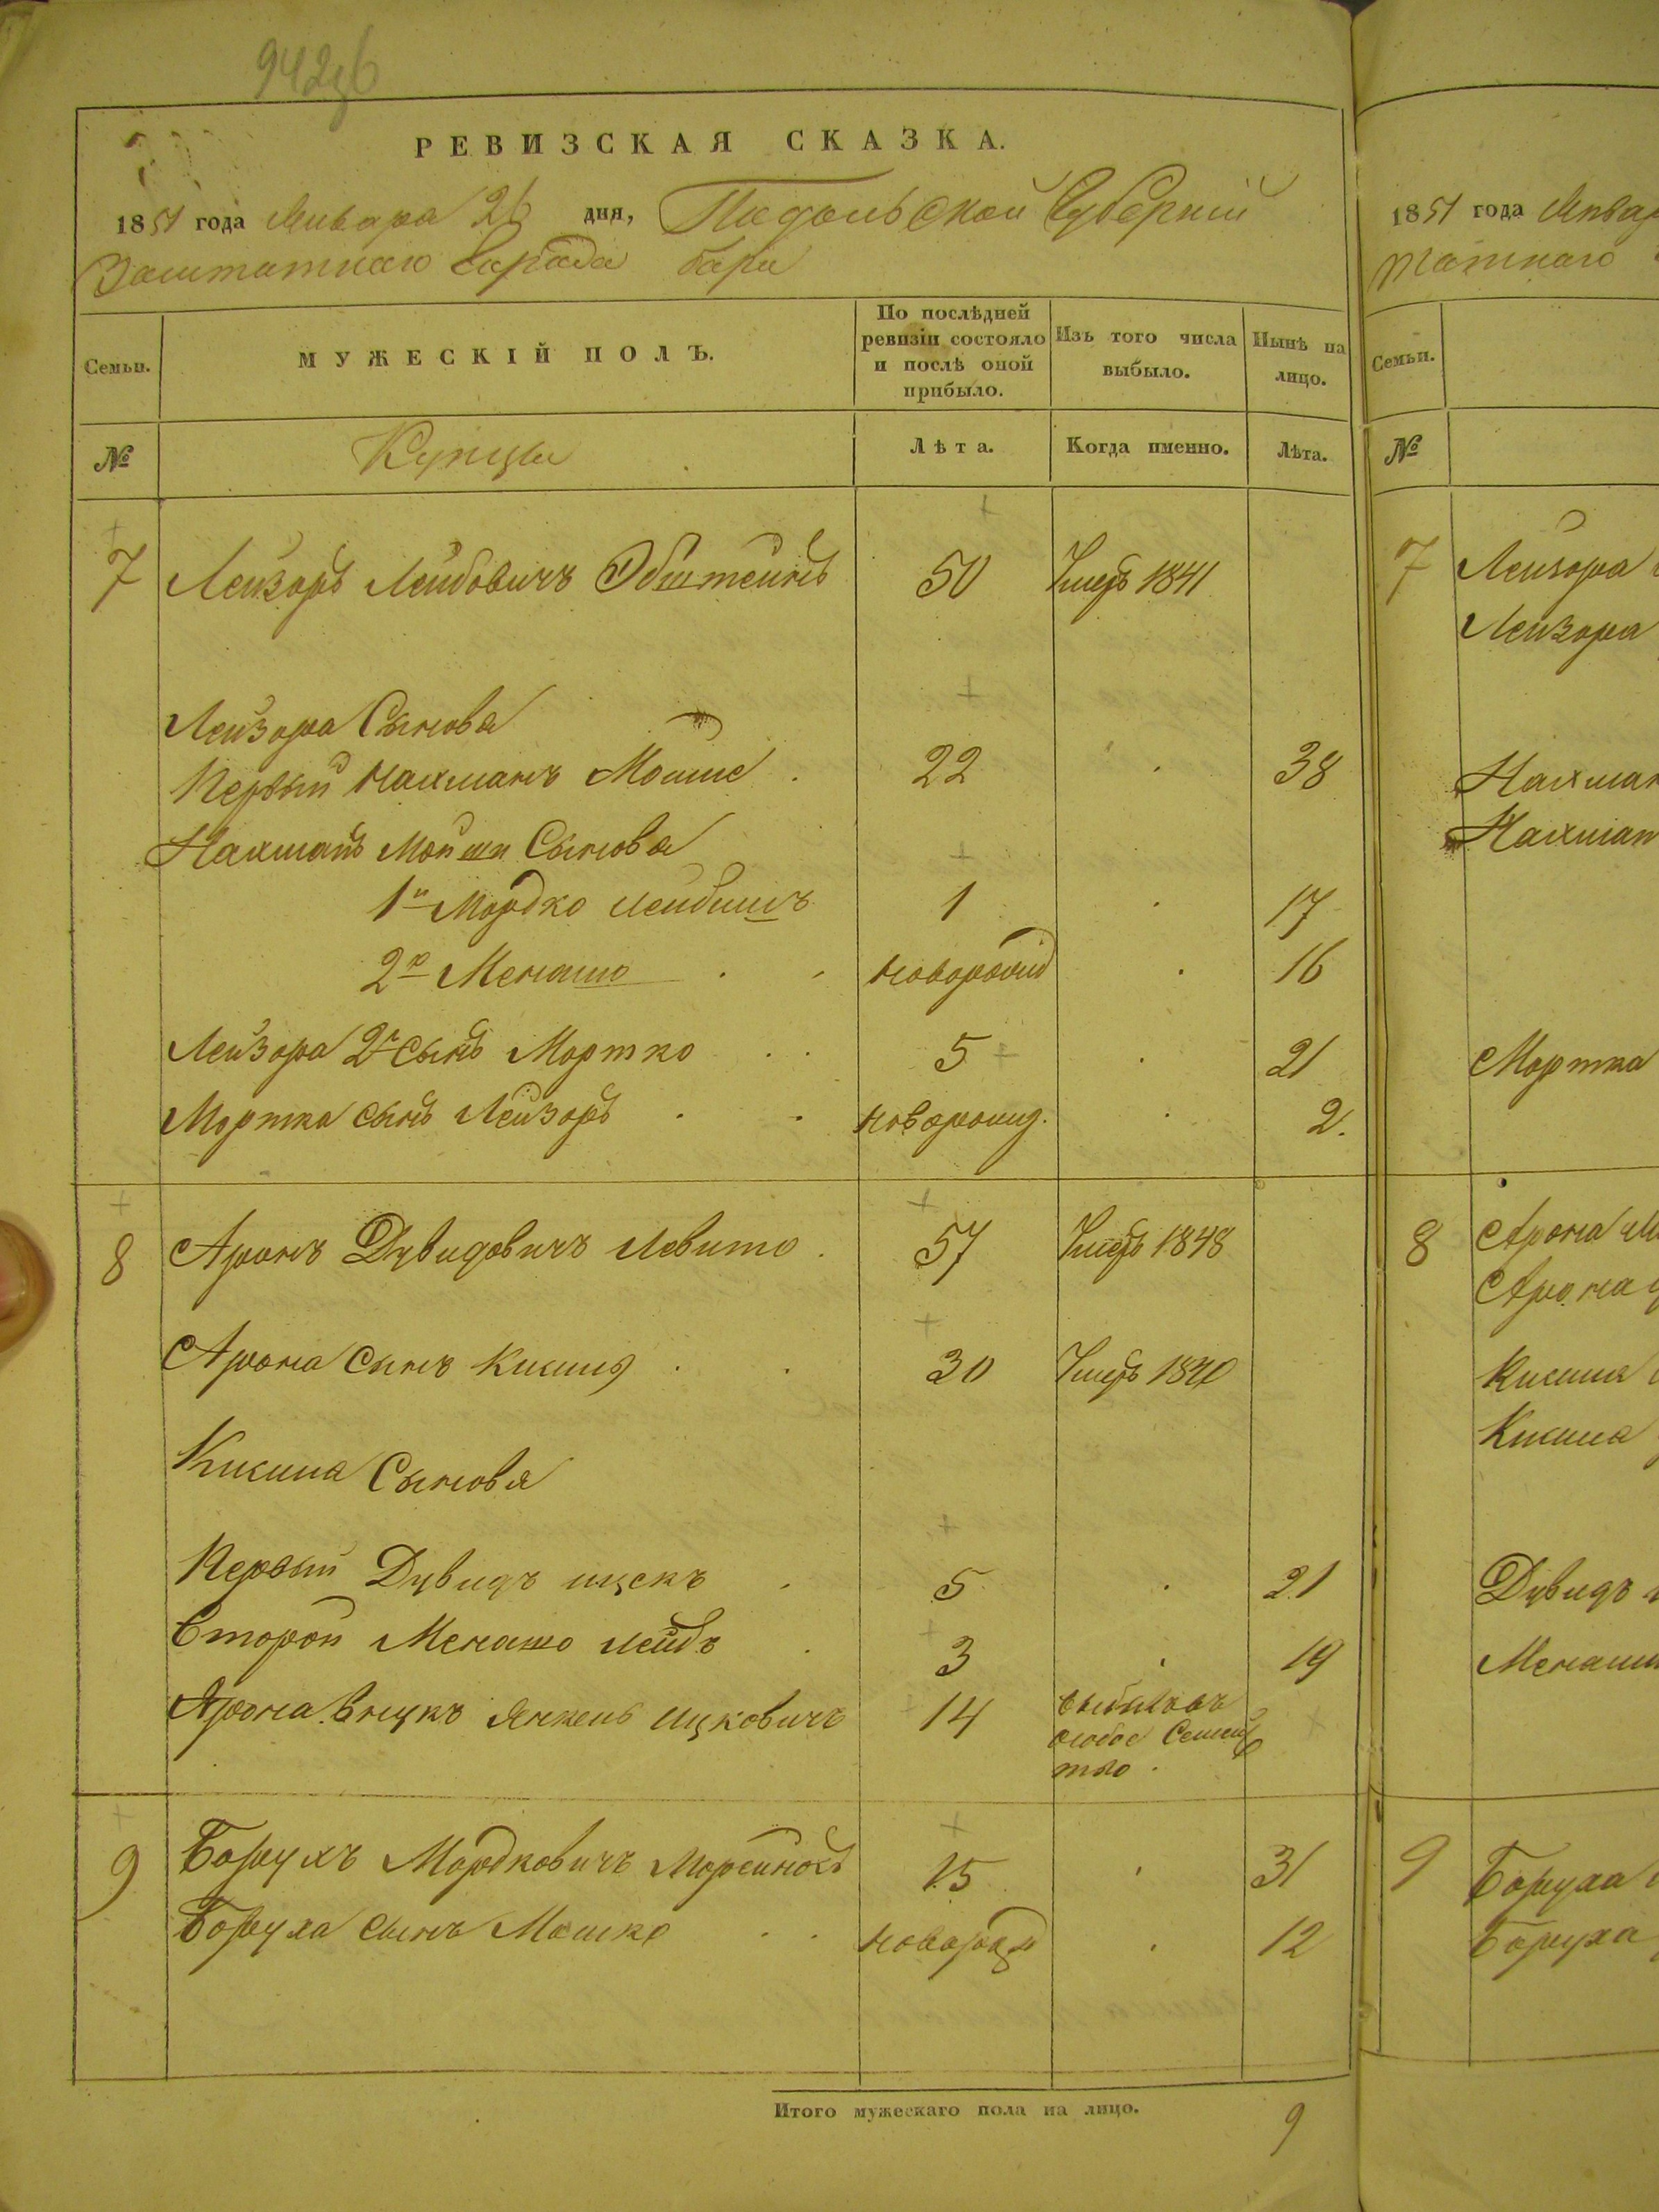 942
РЕВИЗСКАЯ СКАЗКА.
1851 года Января 26 дня, Подольской Губерніи
Заштатнаго города бара
Семьи. МУЖЕСКІЙ ПОЛЪ. По послѣдней ревизіи состояло и послѣ оной прибыло. Изъ того числа выбыло. Нынѣ на лицо.
№ Купцы Лѣта. Когда именно. Лѣта.
7 Лейзоръ Лейбовичъ 50 Умеръ 1841
Лейзора Сыновья
Первый Нахманъ Мойше 22 38
Нахманъ Мойши Сыновья
1й Мордко Лейбишъ 1 17
2й Менашо новорожд 16
Лейзора 2й сынъ Мортко 5 21
Мортка сынъ Лейзоръ новорожд. 2.
8 Аронъ Дувидовичъ Левито 57 Умеръ 1848
Арона Сынъ Кисиль 30 Умеръ 1840
Сыновья
Первый Дувидъ ицекъ 5 21
Второй Менашо Лейбъ 3 19
Арона Внукъ Янкель Ицковичъ 14 выбылъ въ
особое Семей
тво.
9 Борухъ Мордковичъ 15 31
Боруха сынъ Мошко новорожд 12
Итого мужескаго пола на лицо. 9
1851 года Январ
татнаго
Семьи.
№
7 Лейзора
Лейзора
Нахман
Нахман
Мортка
8 Арона
Арона
Дувидъ
9 Боруха
Боруха